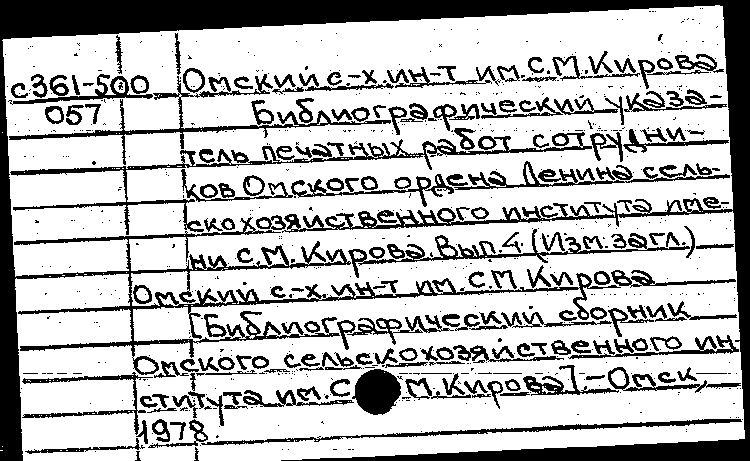 с361-500 Омский с.-х.ин-т им.С.М.Кирова
057 Библиографический указа-
тель печатных работ сотрудни-
ков Омского ордена Ленина сель-
скохозяйственного института име-
ни С.М.Кирова. Вып.4 (Изм.загл.)
Омский с.-х.ин-т им.С.М.Кирова
[Библиографический сборник
Омского сельскохозяйственного ин-
ститута им.С.М.Кирова].-Омск,
1978.